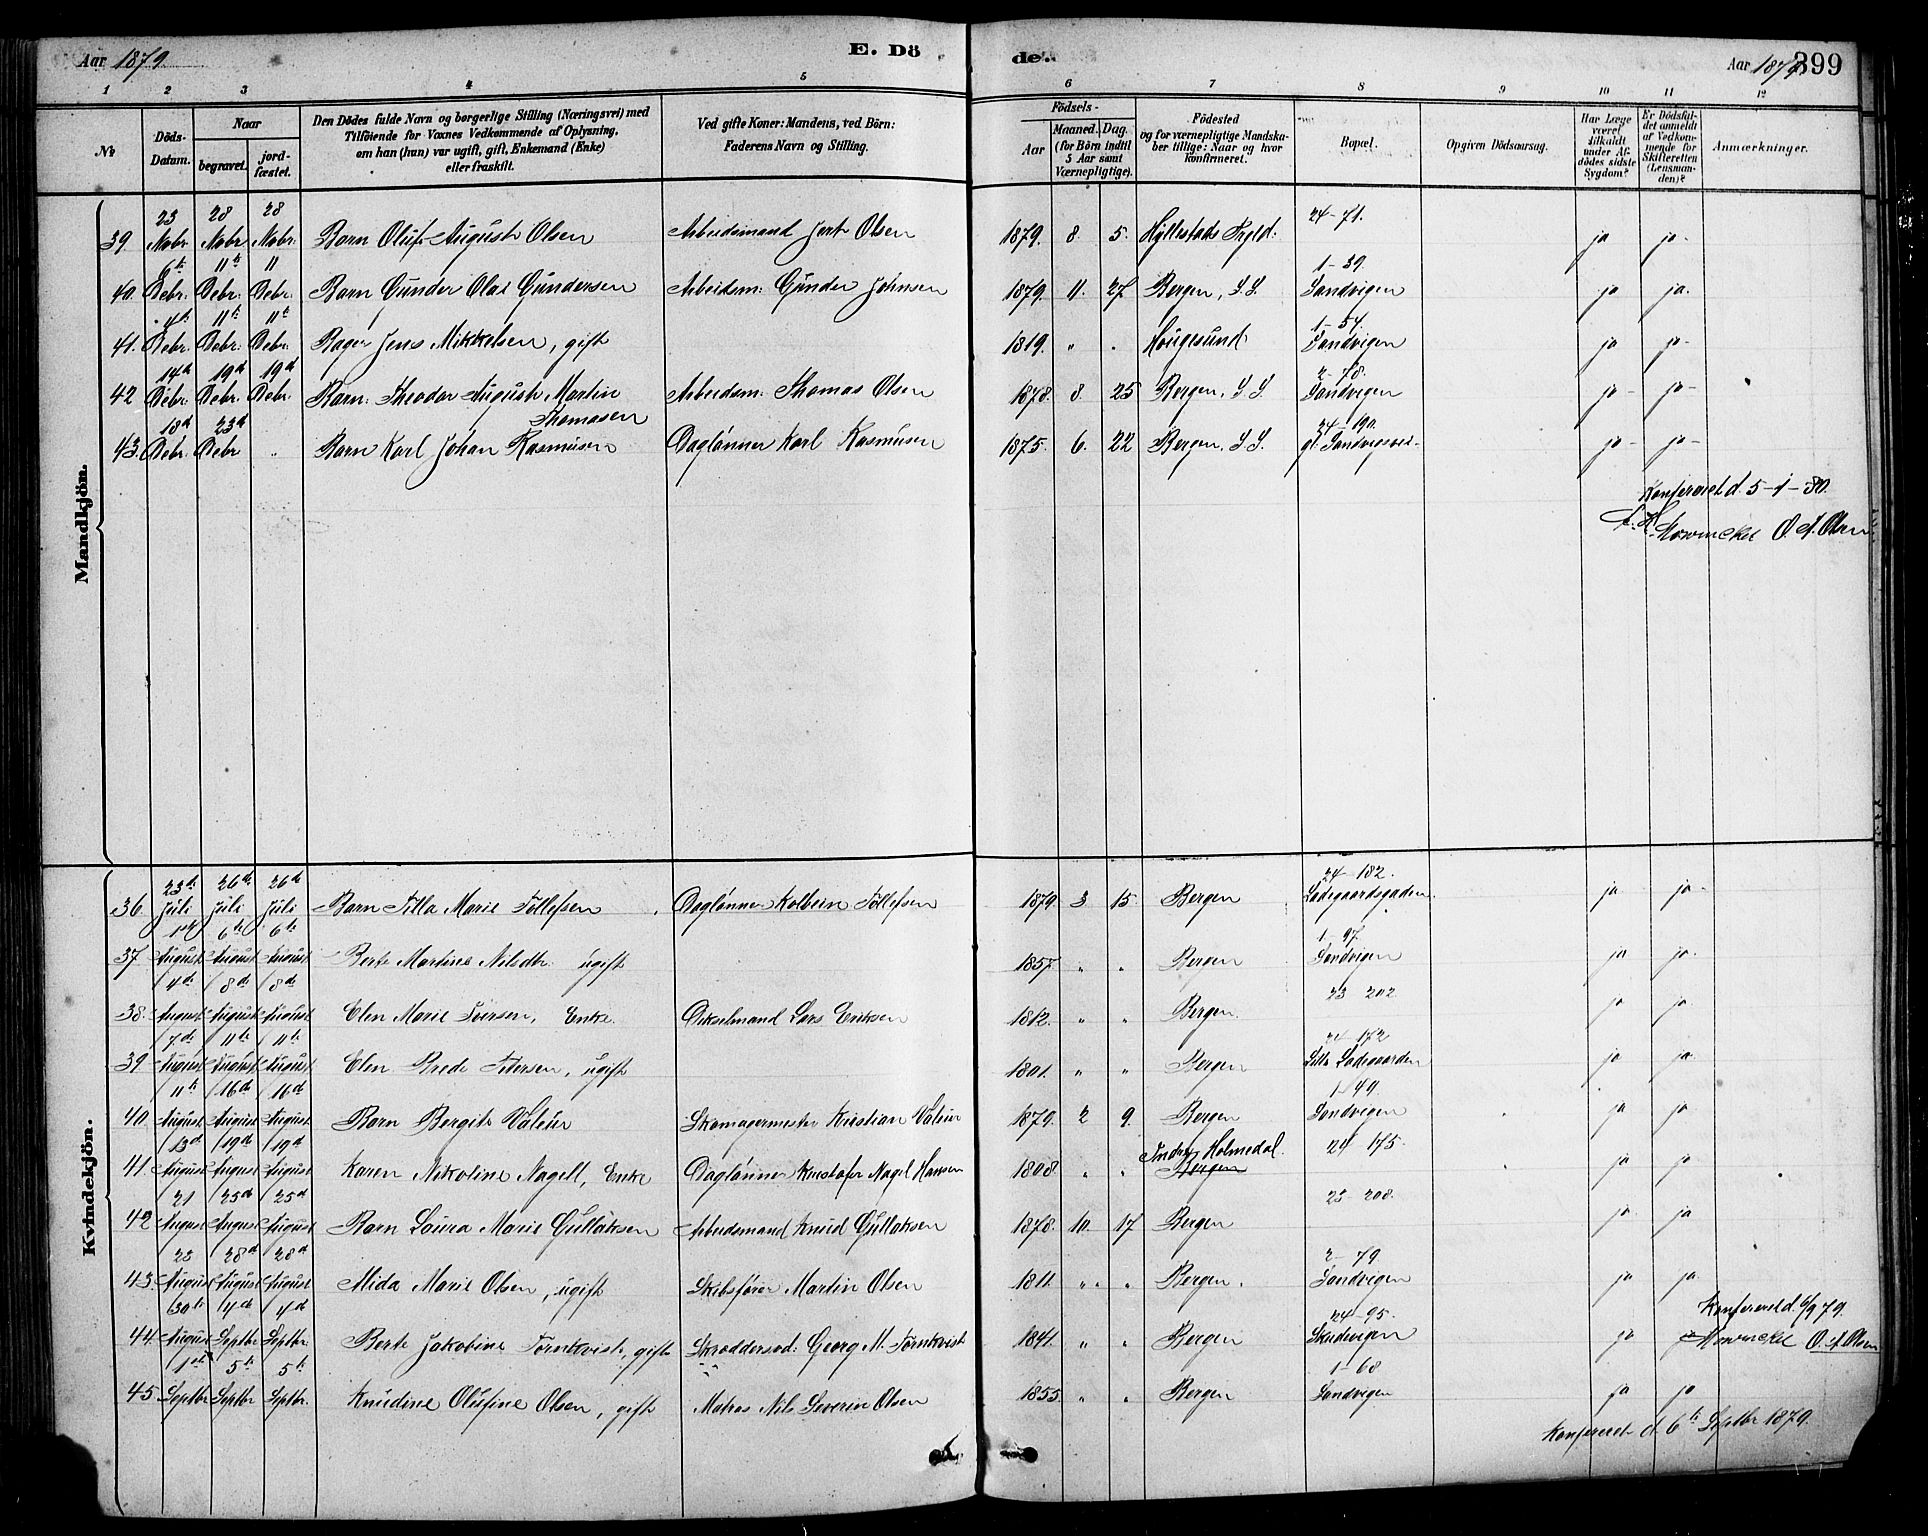 Aar 1879. E. Dö de. Aar 1879. 399
1 2 3 4 5 6 7 8 9 10 11 12
No
Döds-Datum.
Naar
begravet.
jord-fæstet.
Den Dödes fulde Navn og borgerlige Stilling (Næringsvei) med
Tilföiende for Voxnes Vedkommende af Oplysning,
om han (hun) var ugift, gift, Enkemand (Enke)
eller fraskilt.
Ved gifte Koner: Mandens, ved Börn:
Faderens Navn og Stilling.
Födsels-
Aar
Maaned. Dag.
(for Börn indtil
5 Aar samt
Værnepligtige).
Födested
og for værnepligtige Mandska-
ber tillige: Naar og hvor
konfirmeret.
Bopæl.
Opgiven Dödsaarsag.
Har Læge
været
tilkaldt
under Af-
dödes sidste
Sygdom?
Er Dödsfal-
det anmeldt
af Vedkom-
mende for
Skifteretten
(Lensman-
den)?
Anmærkninger.
Mandkjön.
39. 23 Nobr. 28 Nobr. 28 Nobr. Barn Oluf August Olsen Arbeidsmand Olsen 1879. 8 5. Hyllestads Prgld. 24-71. ja ja-
40. 6te Debr. 11te Debr. 11 Debr. Barn Gunder Olai Gundersen Arbeidsm: Gunder Johnsen 1879. 11. 27 Bergen, S.S. 1-39. Sandvigen ja ja.
41. 4te Debr. 11te Debr. 11te Debr. Bager Jens Mikkelsen, gift 1819. " . Hougesund 1-54. Sandvigen ja ja-
42 14d Debr. 19d Debr. 19d Debr. Barn: Theodor August Martin Thomasen Arbeidsm: Thomas Olsen 1878. 8. 25 Bergen, S.S. 2-78. Sandvigen ja- ja-
43. 18d Debr. 23d Debr " Barn Karl Johan Rasmusen Daglønner Karl Rasmusen 1875. 6. 22 Bergen, S.S. 24-190. gl. Sandvigsvei- ja- ja-
Konfereret d. 5-1-80.
Mowinckel O. A. Olsen
Kvindekjön.
36. 23de Juli 26de Juli 26de Juli Barn Tilla Marie Tollefsen Daglønner Kolbein Tollefsen 1879. 3 15. Bergen 24-182. Ladegaardsgaden. ja ja.
37 1ste August 6te August 6te August Berte Martine Nilsdtr. ugift 1857. " " Bergen 1-97. Sandvigen ja ja.
38. 4de August 8de August 8de August Elen Marie Iversen, Enke. Lars Eriksen 1812. " " Bergen. 23 202. ja ja
39 7de August 11te August 11te August Elen Brede Petersen, ugift 1801. " " Bergen 24-172 Lille Ladegaarden ja ja.
40. 11te August 16de August 16de August Barn Bergite Valeur Skomagermester Kristian Valeur 1879. 2 9. Bergen 1-49. Sandvigen ja ja-
41. 13d August 19d August 19d August Karen Nikoline Nagell, Enke Daglønner Kristofer Nagel Hansen 1808. " " Indre Holmedal. Bergen 24 175. ja ja
42 21 August 25d August 25d August Barn Laura Marie Gullaksen Arbeidsmand Knud Gullaksen 1878. 10. 17 Bergen 23-208. ja. ja
43. 23 August 28d August 28d August Mida Marie Olsen, ugift Skibsfører Martin Olsen 1811. " " Bergen. 2-79. Sandvigen ja ja.
Konfereret d. 6/9 79.
44. 30te August 4de Septbr. 4d Septbr. Berte Jakobine Törnkvist, gift Skræddersvd: Georg M. Törnkvist 1841. " " Bergen 24-95. Skudevigen ja ja Mowinckel O. A. Olsen
45. 1ste Septbr 5te Septbr 5te Septbr. Knudine Olufine Olsen, gift Matros Nils Severin Olsen 1855 " " Bergen 1-68 Sandvigen ja ja
Konfereret d. 6te Septbr 1879.